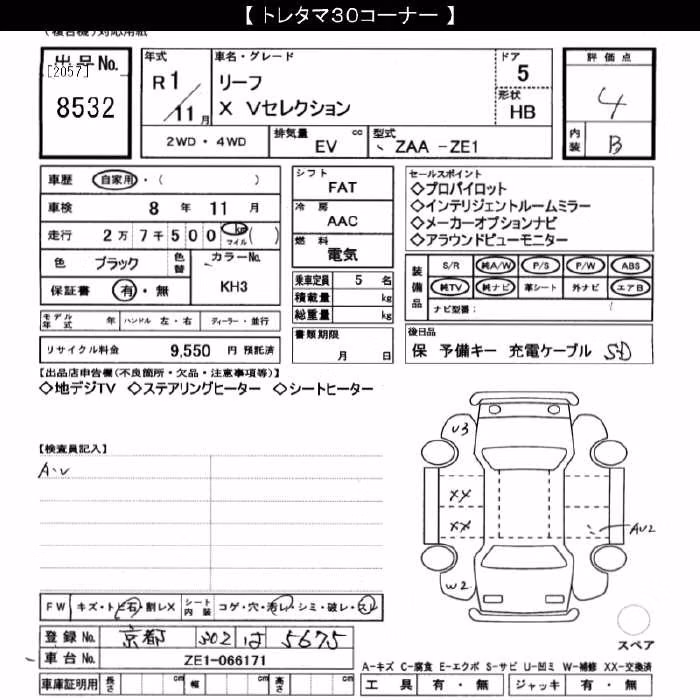 【 トレタマ30コーナー 】
(複合機)対応用紙
出品No.
[2057]
8532
年式
R1/11月
車名・グレード
リーフ
X Vセレクション
ドア
5
形状
HB
評価点
4
内装
B
2WD・4WD
排気量
cc
EV
型式
ZAA -ZE1
車歴 自家用・( )
車検 8 年 11 月
走行 2万7千500 km マイル ( )
色 ブラック 色替
カラーNo.
KH3
保証書 有・無
モデル年式 年 ハンドル 左・右 ディーラー・並行
リサイクル料金 9,550 円 預託済
シフト
FAT
冷房
AAC
燃料
電気
乗車定員 5 名
積載量 kg
総重量 kg
書類期限
月 日
セールスポイント
◇プロパイロット
◇インテリジェントルームミラー
◇メーカーオプションナビ
◇アラウンドビューモニター
装備品
S/R 純A/W P/S P/W ABS
純TV 純ナビ 革シート 外ナビ エアB
ナビ型番: ( )
後日品
保 予備キー 充電ケーブル SD
【出品店申告欄(不良箇所・欠品・注意事項等)】
◇地デジTV ◇ステアリングヒーター ◇シートヒーター
【検査員記入】
A・U
U3
XX
XX
AU2
W2
スペア
FW キズ・トビ石・割レX シート内装 コゲ・穴・汚レ・シミ・破レ・スレ
登録No. 京都 302 は 5675
車台No. ZE1-066171
車庫証明用 長さ cm 幅 cm 高さ cm
A-キズ C-腐食 E-エクボ S-サビ U-凹ミ W-補修 XX-交換済
工具 有・無 ジャッキ 有・無